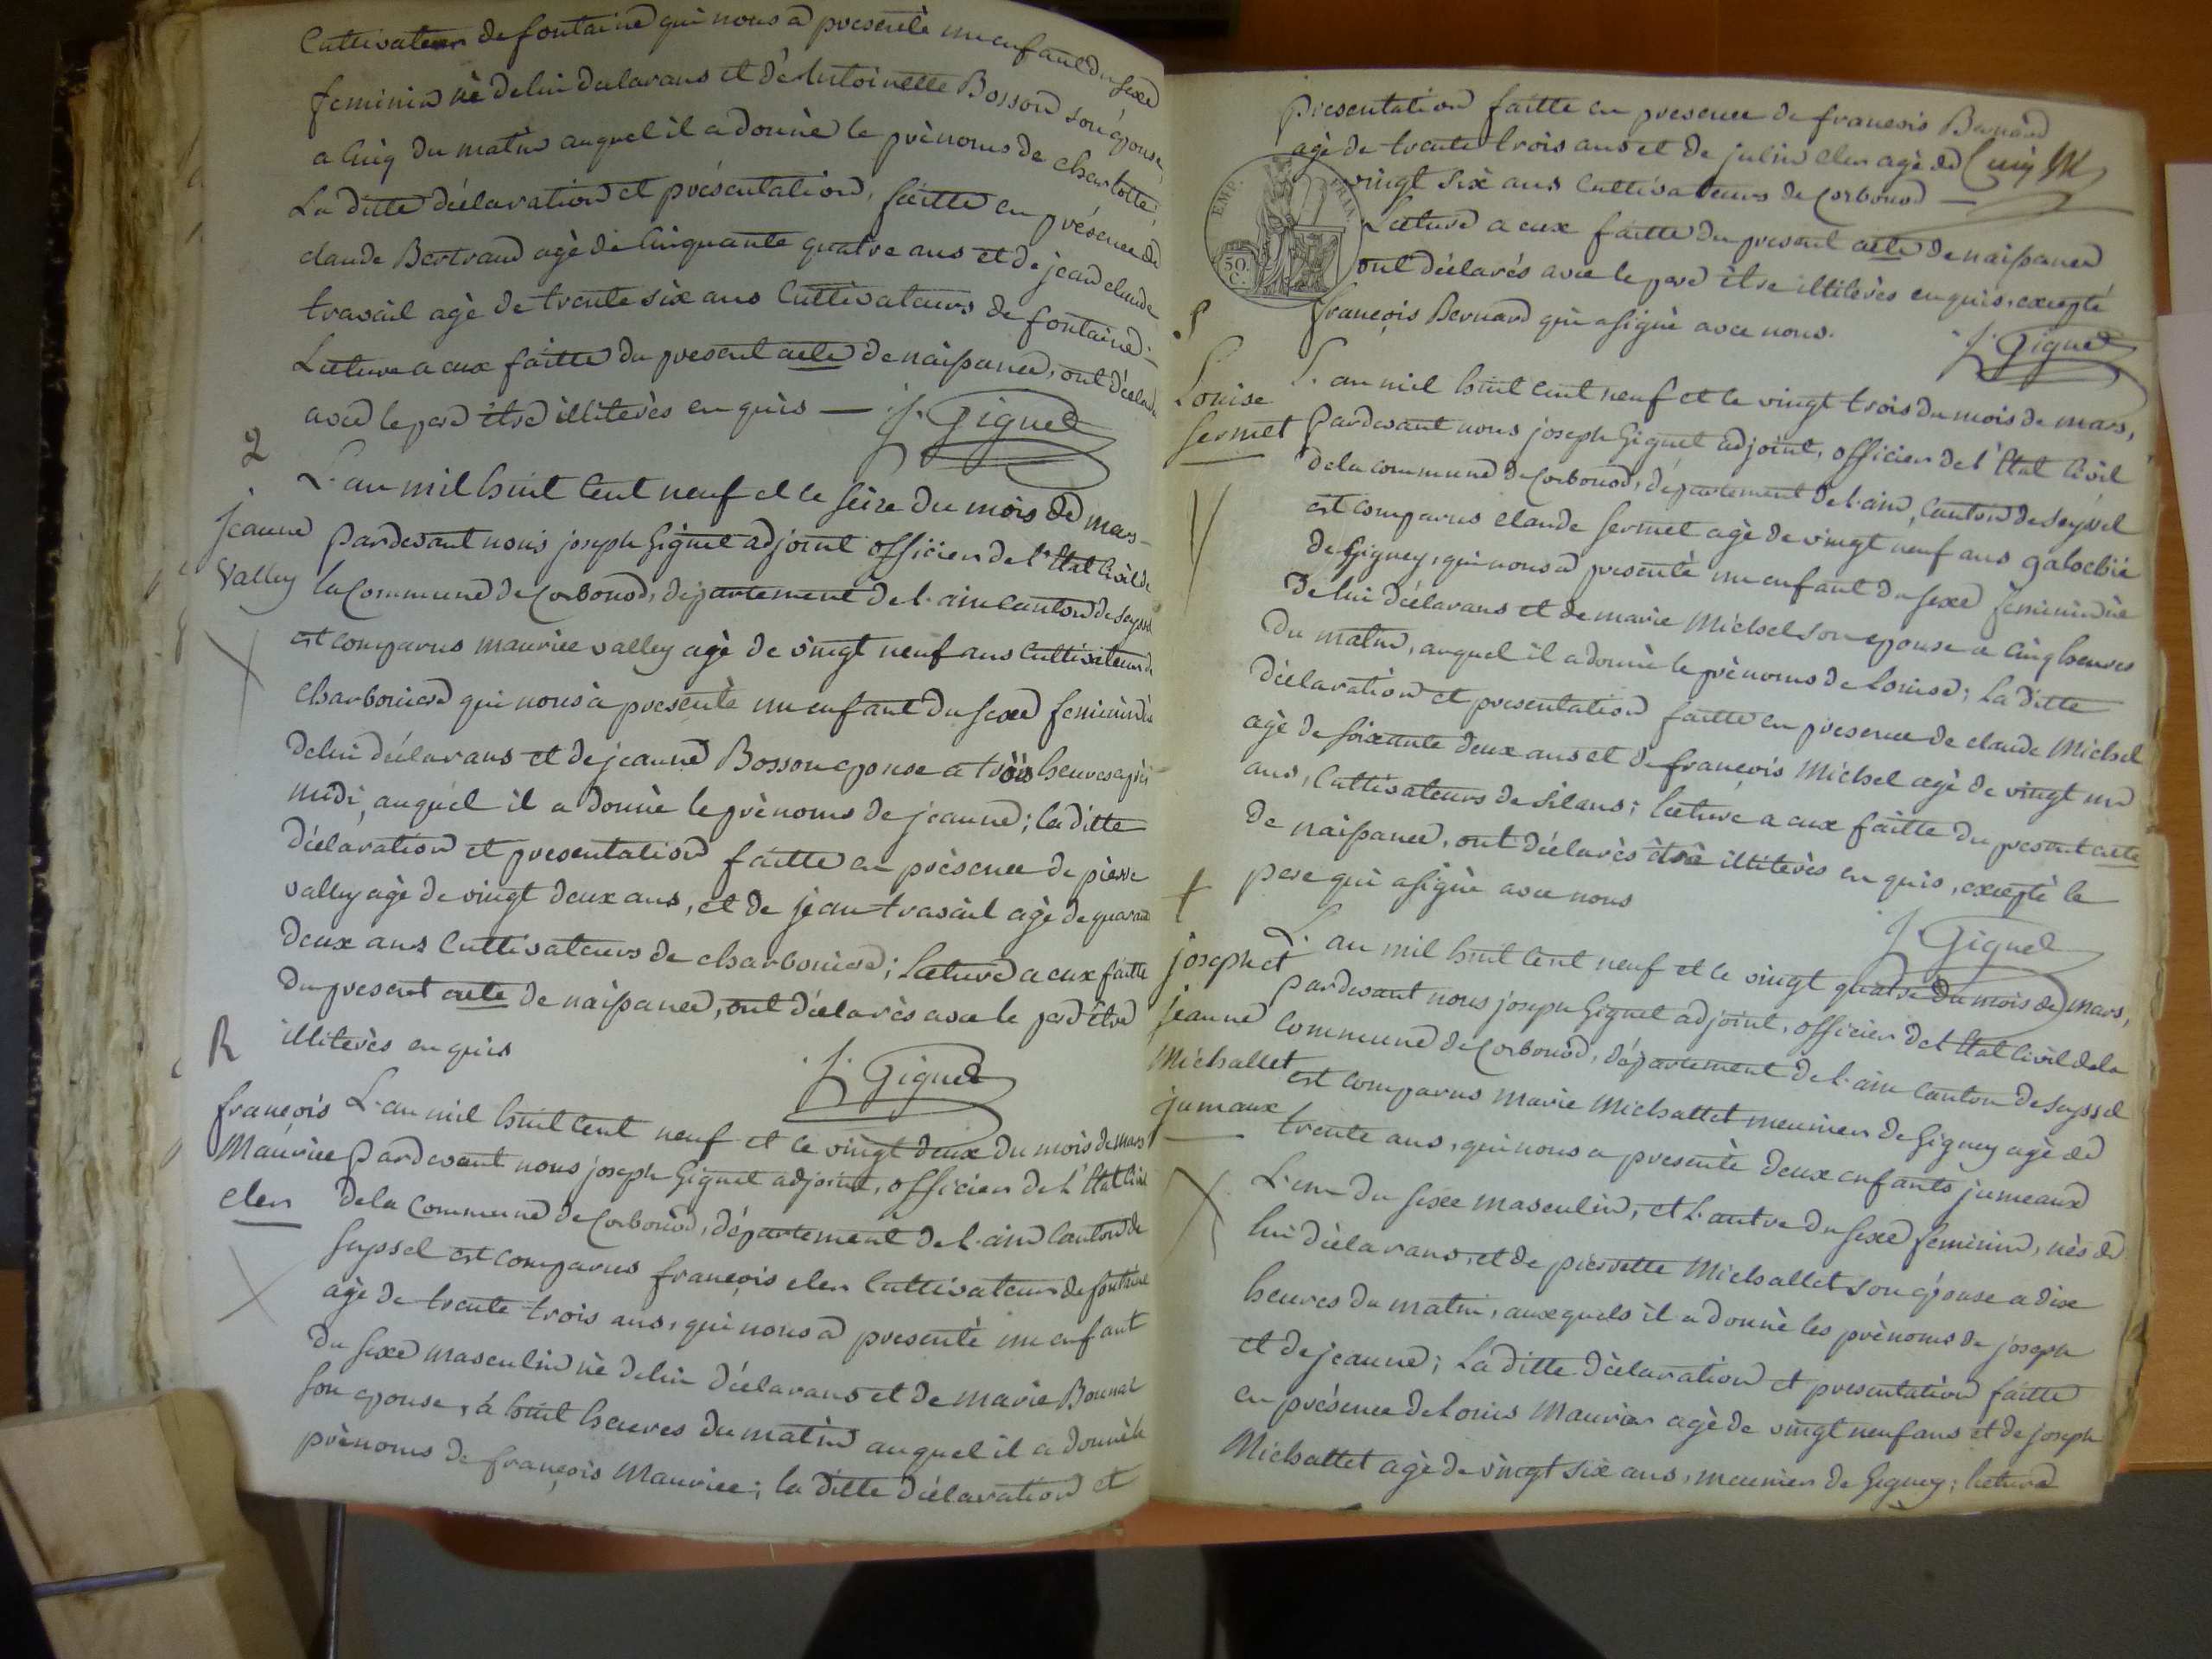 Cultivateur de fontaine qui nous a presenté un enfant du sexe
feminin né de lui déclarans et d'Antoinette Bosson son épouse,
a cinq du matin auquel il a donnè le prènoms de charlotte,
La ditte déclaration et présentation, faitte en présence de
claude Bertrand agè de cinquante quatre ans et de jean claude
travail agè de trente six ans Cultivateurs de fontaine.
Lecture a eux faitte du present acte de naissance, ont déclaré
avec le pere être illiterès enquis — J. Giguet
2
Jeanne
Valley
L'an mil huit Cent neuf et le seize du mois de mars
Pardevant nous joseph Giguet adjoint officier de l'Etat Civil de
la Commune de Corbonod, département de l'ain Canton de Seyssel
est comparus maurice valley agè de vingt neuf ans Cultivateur de
charboniere qui nous à presenté un enfant du sexe feminin nè
de lui déclarans et de jeanne Bosson eponse a trois heures après
midi, auquel il a donnè le prènoms de jeanne; la ditte
déclaration et presentation faitte en présence de pierre
valley agè de vingt deux ans, et de jean travail agè de quarante
deux ans Cultivateurs de charboniere; Lecture a eux faitte
du present acte de naissance, ont déclarès avec le pere être
illiterès enquis
J. Giguet
R
françois
Maurice
cler
L'an mil huit Cent neuf et le vingt deux du mois de mars
Pardevant nous joseph Giguet adjoint, officier de l'Etat Civil
de la Commune de Corbonod, département de l'ain Canton de
seyssel est comparus françois cler Cultivateur de fontaine
agè de trente trois ans, qui nous a presentè un enfant
du sexe masculin nè de lui déclarans et de marie Bonnat
son eponse, à huit heures du matin auquel il a donnè le
prènoms de françois Maurice; la ditte déclaration et
Presentation faitte en presence de françois Bernard
agè de trente trois ans et de julien cler agè de
vingt six ans Cultivateurs de Corbonod —
EMP. FRAN.
50. C.
Lecture a eux faitte du present acte de naissance
ont déclarés avec le pere être illiterès enquis, excepté
françois Bernard qui a signè avec nous.
J. Giguet
Louise
Sermet
L'an mil huit cent neuf et le vingt trois du mois de mars,
Pardevant nous joseph Giguet adjoint, officier de l'Etat Civil
de la commune de Corbonod, département de l'ain, Canton de Seyssel
est comparus claude sermet agè de vingt neuf ans galochié
de Gigney, qui nous a presentè un enfant du sexe feminin nè
de lui déclarans et de marie Michel son eponse a cinq heures
du matin, auquel il a donnè le prènoms de Louise; La ditte
déclaration et presentation faitte en presence de claude Michel
agè de soixante deux ans et de françois Michel agè de vingt un
ans, Cultivateurs de silans; lecture a eux faitte du present acte
de naissance, ont déclarès être illiterès enquis, exceptè le
pere qui a signè avec nous
J. Giguet
joseph et
jeanne
Michallet
jumaux
L'an mil huit Cent neuf et le vingt quatre du mois de mars,
Pardevant nous joseph Giguet adjoint, officier de l'Etat Civil de la
Commune de Corbonod, département de l'ain Canton de seyssel
est comparus marie Michallet meunier de Gigney agè de
trente ans, qui nous a presentè deux enfants jumeaux
L'un du sexe masculin, et l'autre du sexe feminin, nès de
lui déclarans, et de pierrette Michallet son épouse a dix
heures du matin, auxquels il a donnè les prènoms de joseph
et de jeanne; La ditte déclaration et presentation faitte
en présence de Louis Maurier agè de vingt neuf ans et de joseph
Michallet agè de vingt six ans, meunier de Gigney; lecture